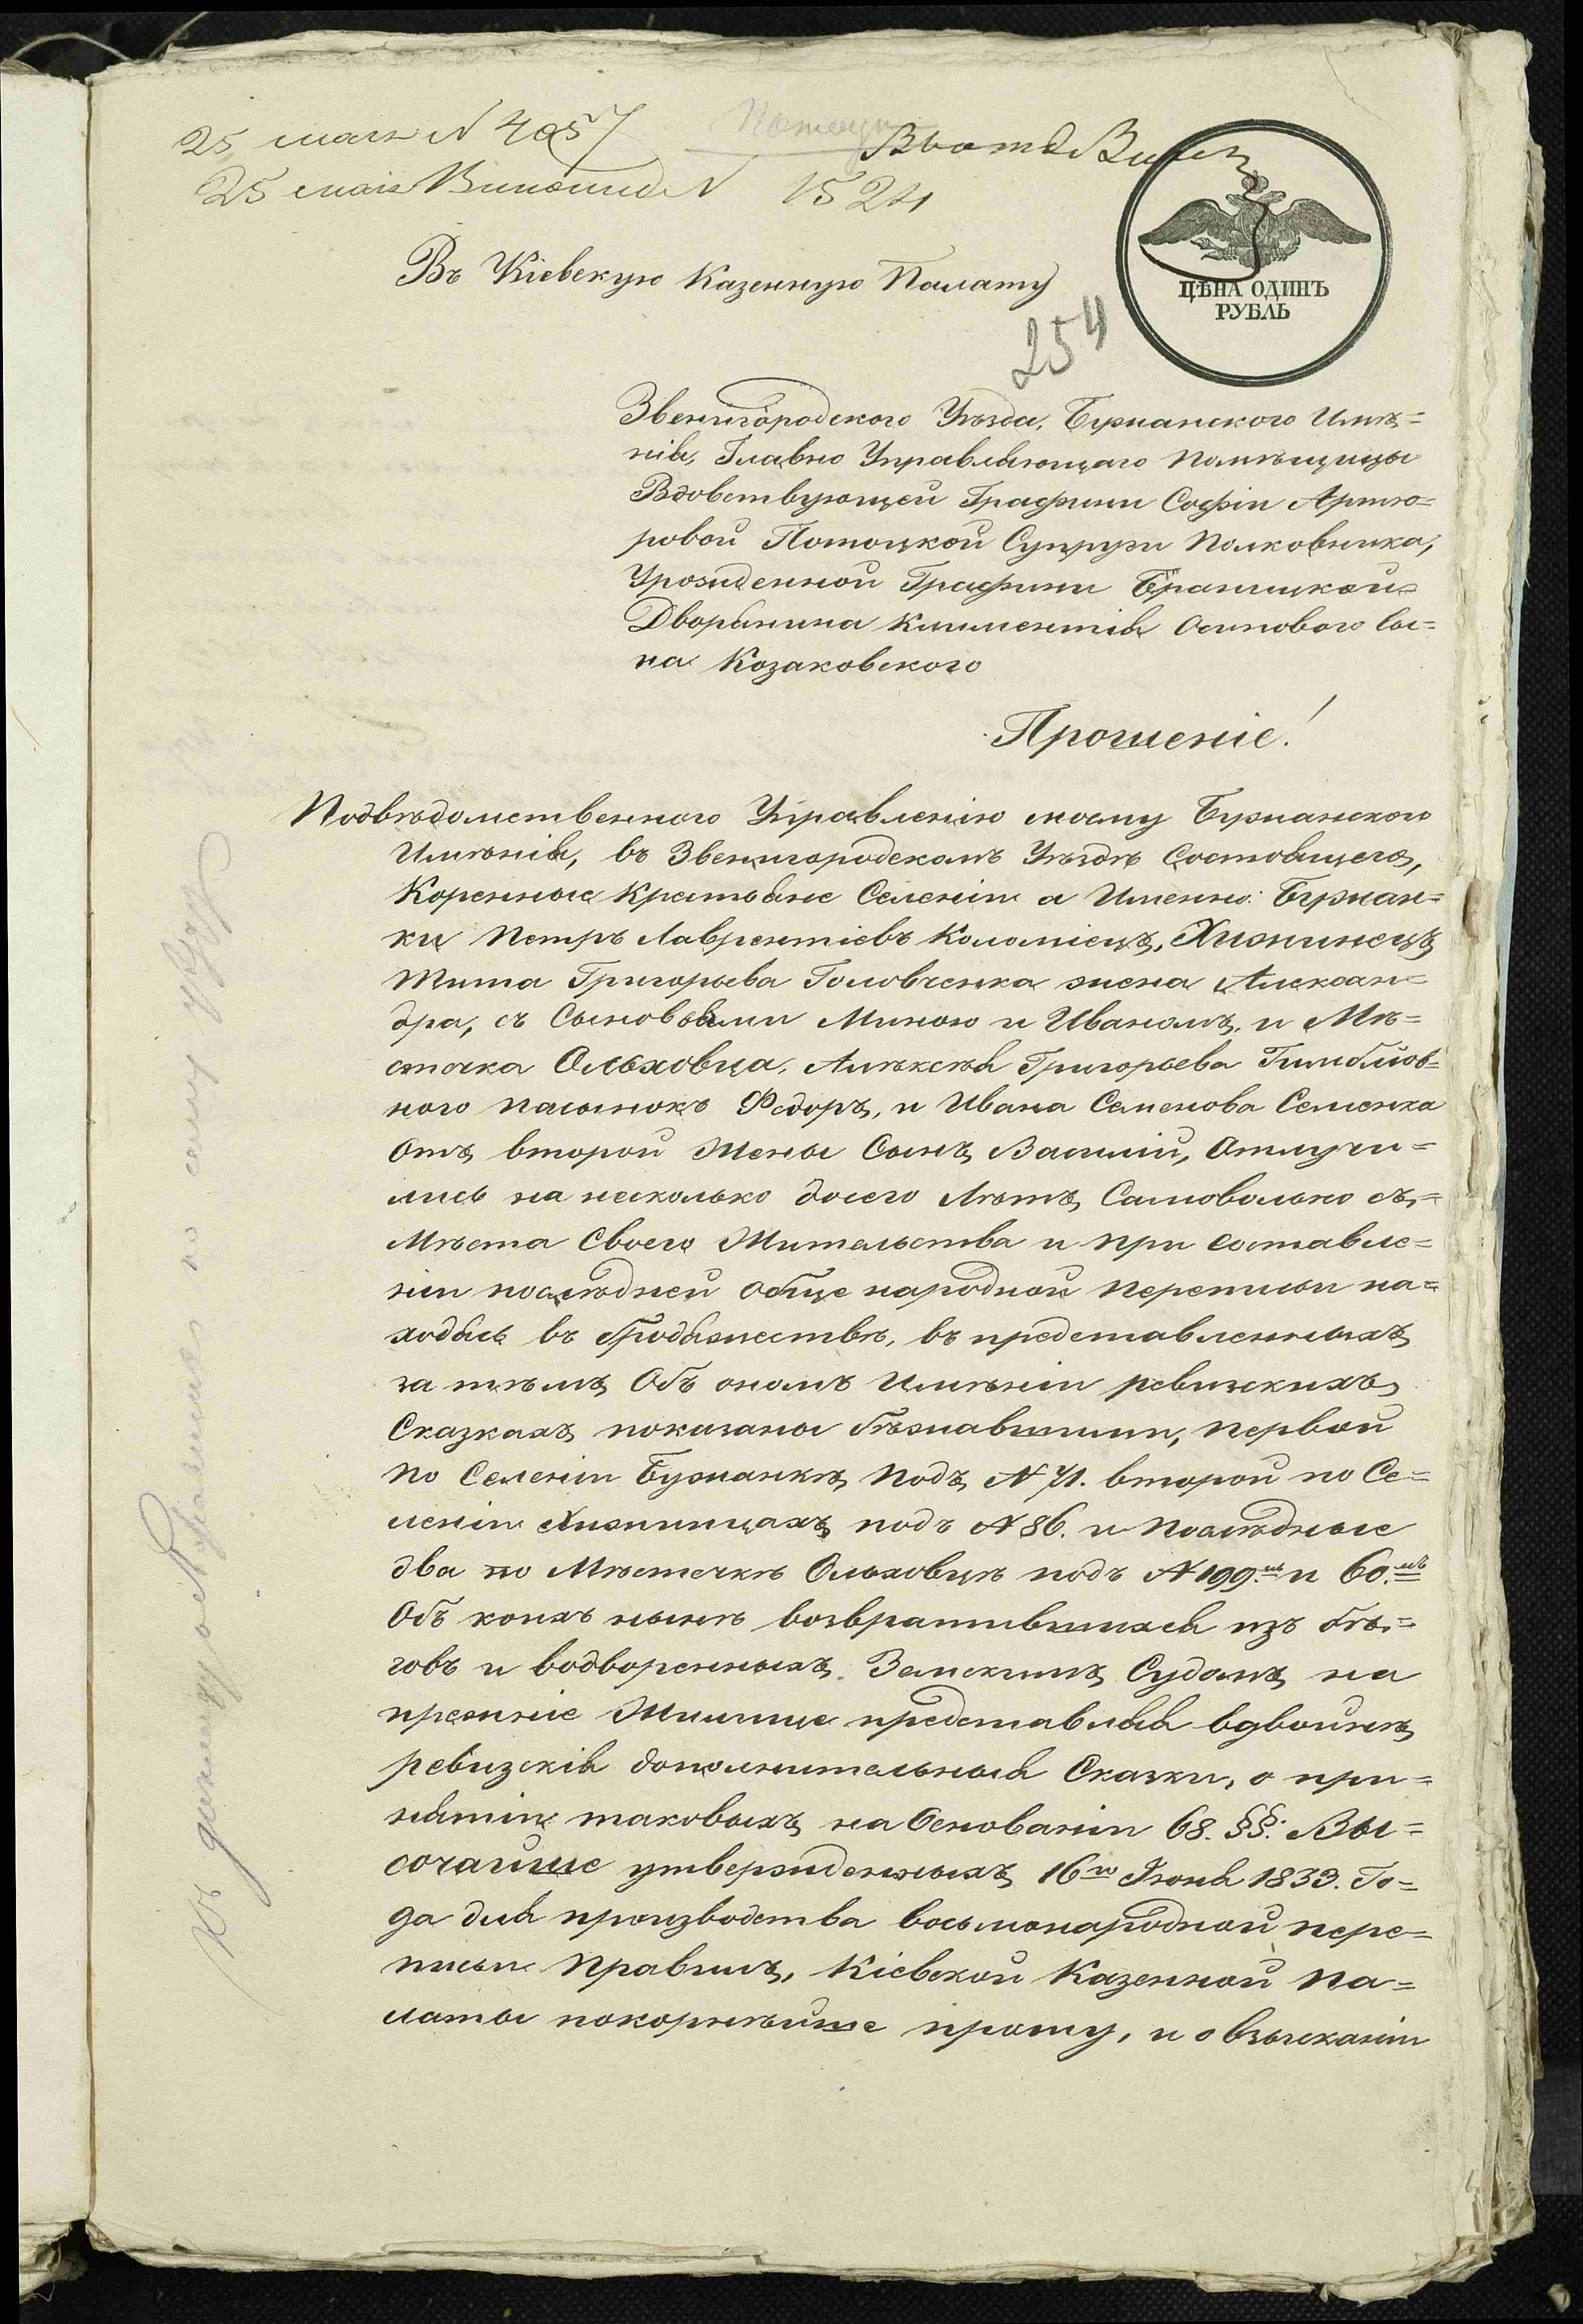 25 мая N 4057
25 мая N 1524
Въ Кіевскую Казенную Палату
ЦѢНА ОДИНЪ
РУБЛЬ
254
Звенигородского Уѣзда, Бужанского Имѣ=
нія, Главно Управляющаго Помѣщицы
Вдовствующей Графини Софіи Артю=
ровой Потоцкой Супруги Полковника,
Урожденной Графини Браницкой
Дворянина Климентія Осипового Сы=
на Козаковского
Прошеніе!
Подвѣдомственного Управленію моему Бужанского
Имѣнія, въ Звенигородскомъ Уѣздѣ Состоящего,
Коренные Крестьяне Селеніи а Именно: Бужан=
ки Петръ Лаврентіевъ Коломіецъ, Хижинецъ
Тита Григорьева Головченка жена Алексан=
дра, съ Сыновьями Миною и Иваномъ, и Мѣ=
стечка Ольховца, Алѣксѣя Григорьева
ного пасынокъ Федоръ, и Ивана Семенова Семенка
Отъ второй Жены Сынъ Василій, Отлучи=
лись на несколько досего Лѣтъ Самовольно съ=
Мѣста Своего Жительства и при составле=
ніи послѣдней обще народной переписи на=
ходясь въ бродяжествѣ, въ представленныхъ
за тѣмъ Объ ономъ Имѣніи ревизскихъ
Сказкахъ показаны бѣжавшими, первой
по Селеніи Бужанкѣ подъ N 71. второй по Се=
леніи Хижинцахъ подъ N 86. и послѣдные
два по Мѣстечкѣ Ольховцѣ подъ N 199.мъ и 60.мъ
Объ коихъ нынѣ возвратившихся изъ бѣ=
говъ и водворенныхъ Земскимъ Судомъ на
прежніе Жилище представляя вдвойнѣ
ревизскія дополнительныя Сказки, о при=
нятіи таковыхъ на Основаніи 68. §§. Вы=
сочайше утвержденныхъ 16го Іюня 1833. Го=
да для производства восьмонародной пере=
писи Правилъ, Кіевской Казенной Па=
латы покорнѣйше прошу, и о взысканіи